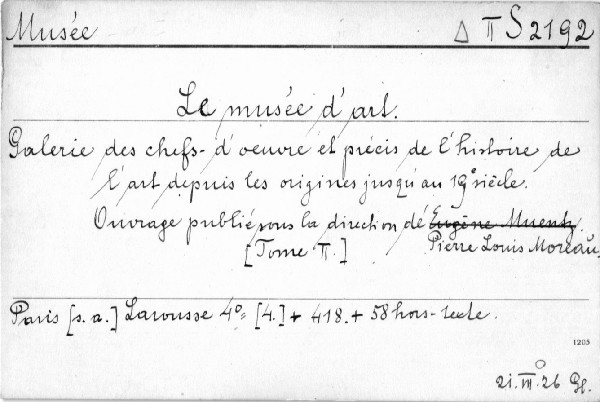 Musée △ II S 2192
Le musée d'art.
Galerie des chefs-d'oeuvre et précis de l'histoire de
l'art depuis les origines jusqu'au 19e siècle.
Ouvrage publié sous la direction de Eugène Muentz.
[Tome II.] Pierre Louis Moreau.
Paris [s.a.] Larousse 4° [4.] + 418. + 58 hors-texte.
1205
21.VII.26